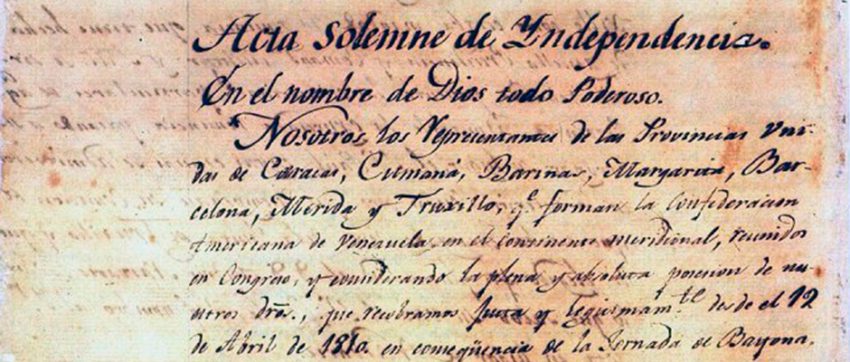 Acta Solemne de Yndependencia.
En el nombre de Dios todo Poderoso.
Nosotros los Representantes de las Provincias Uni-
das de Caracas, Cumaná, Barinas, Margarita, Bar-
celona, Merida y Truxillo, q.e forman la Confederacion
Americana de Venezuela en el continente meridional, reunidos
en Congreso, y considerando la plena y absoluta posesion de nu-
estros dros., que recobramos justa y legitimam.te desde el 19
de Abril de 1810. en conseqüencia de la Jornada de Bayona,